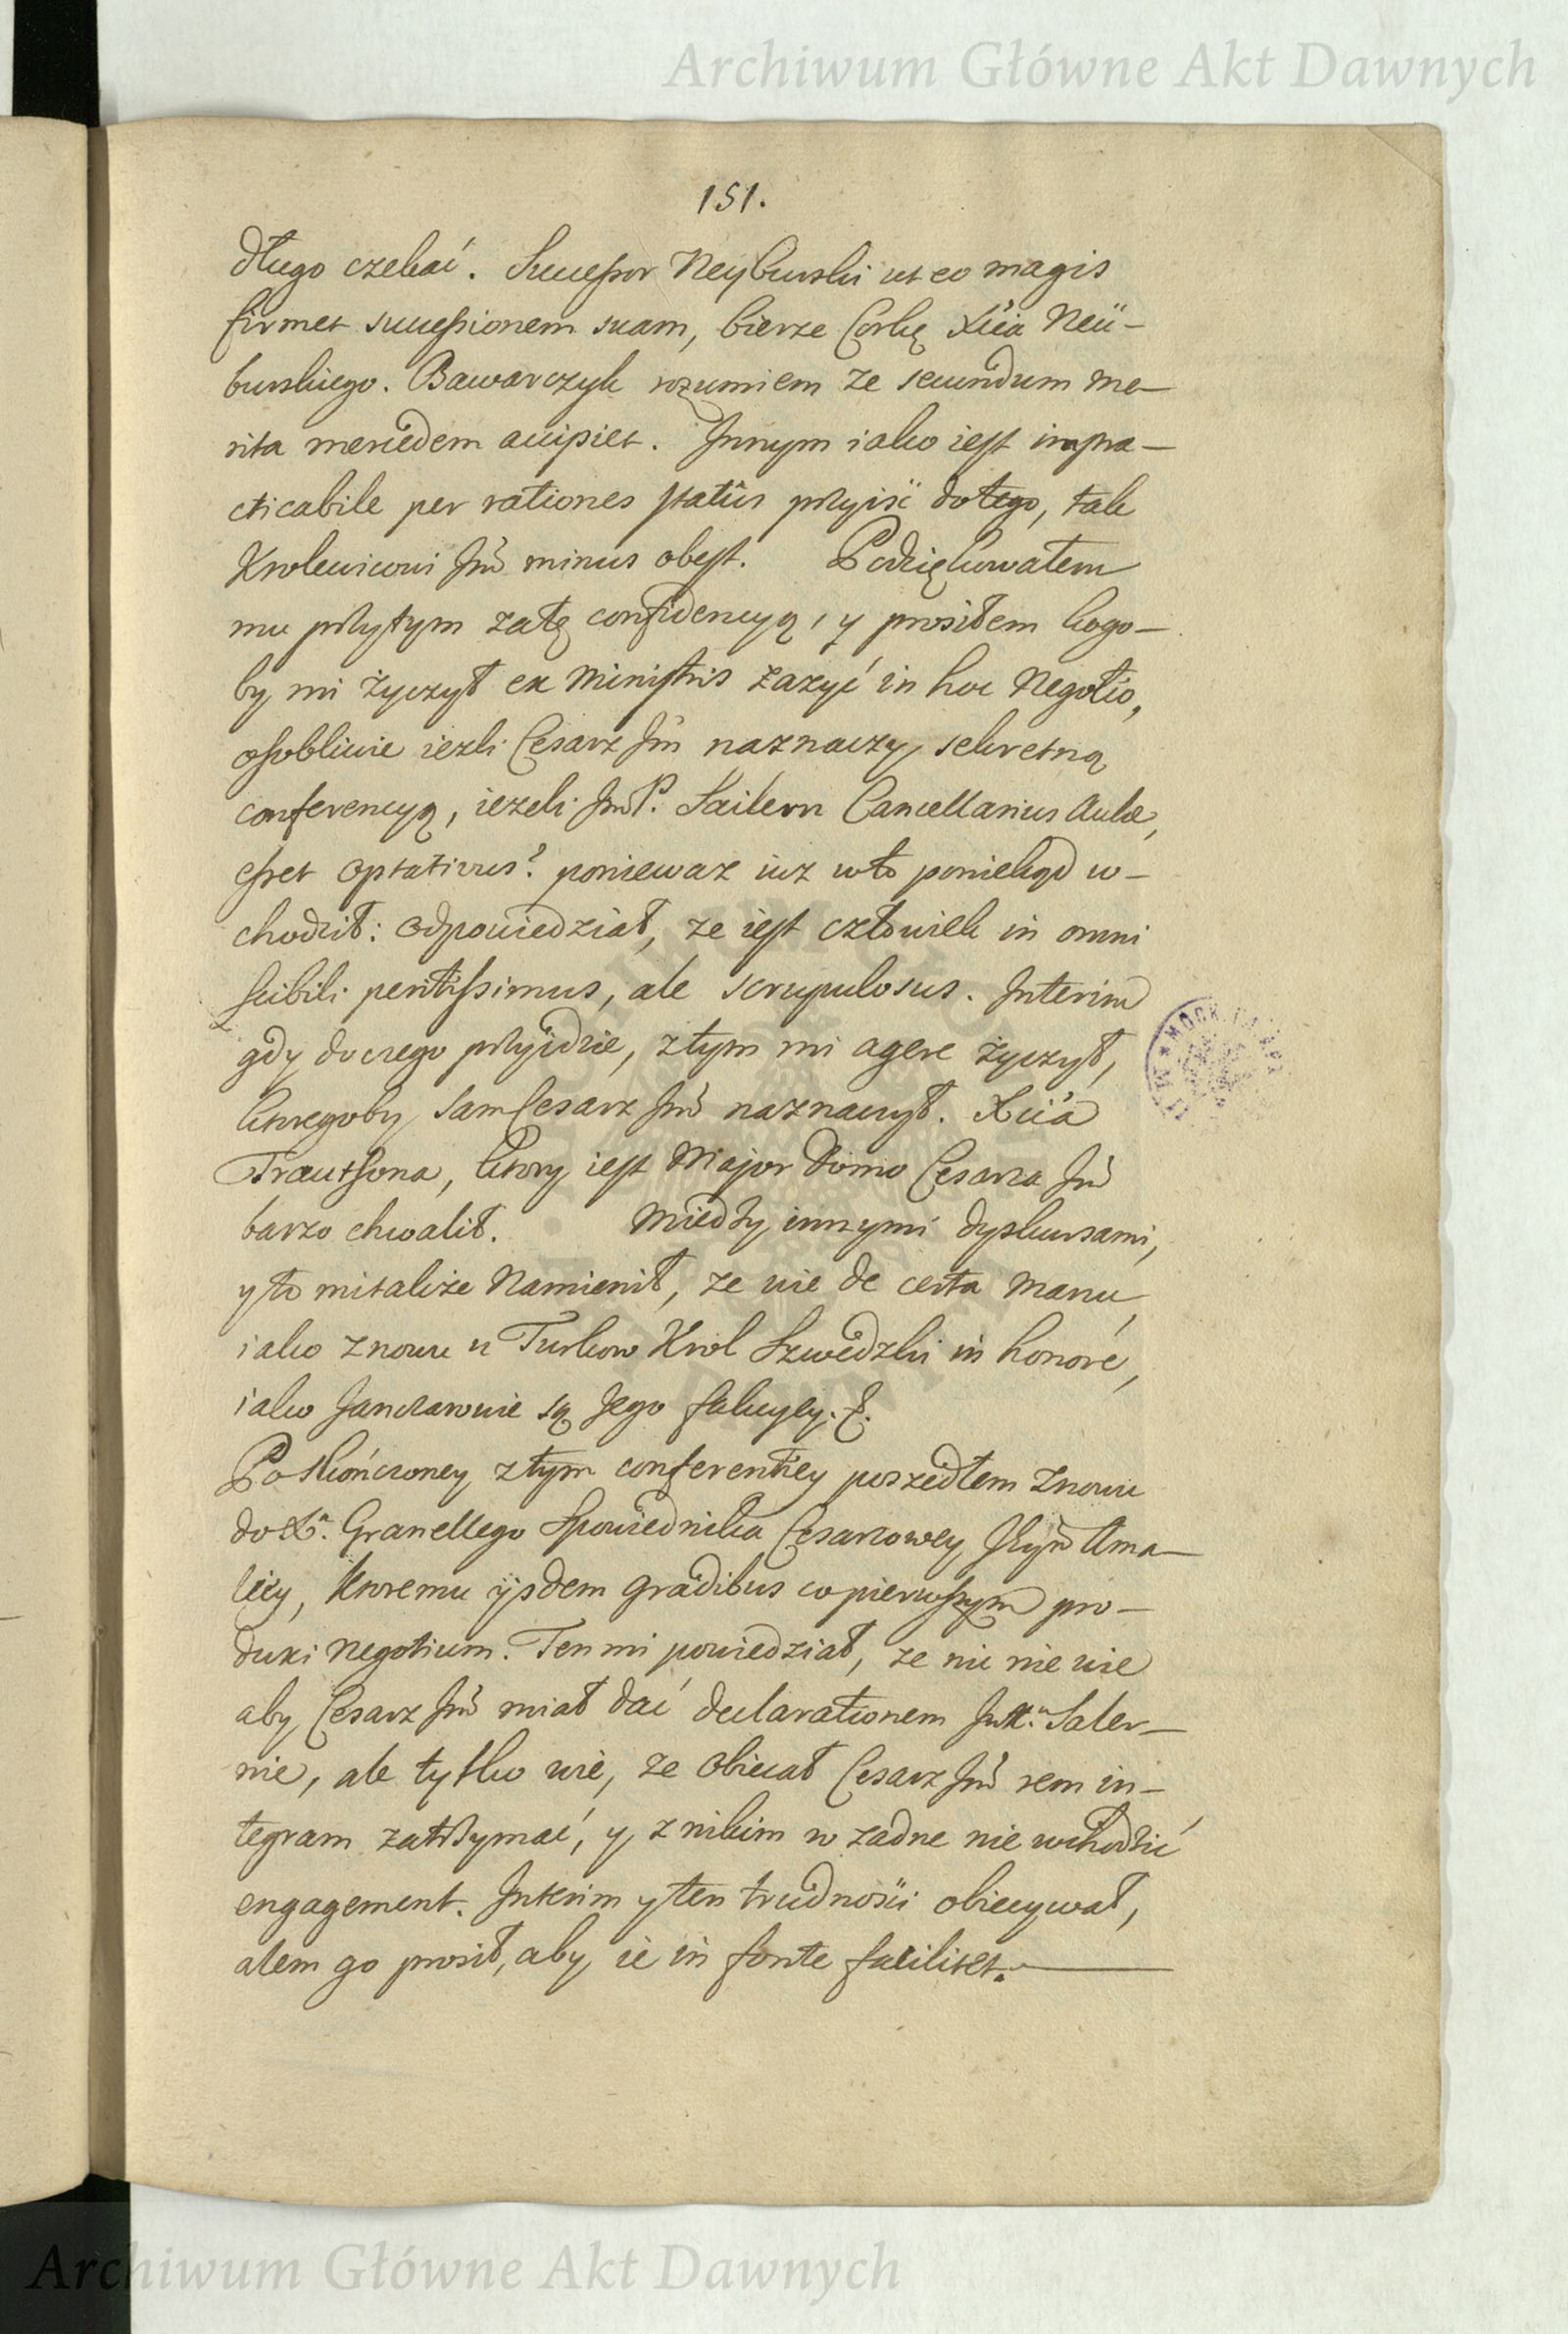 Archiwum Główne Akt Dawnych
151.
długo czekać. Successor Neyburski ut eo magis
firmet successionem suam, bierze Corkę Xcia Neü-
burskiego. Bawarczyk rozumiem ze secundum me-
rita mercedem accipiet. Innym iako iest impra-
cticabile per rationes statûs przyiść dotego, tak
Krolewicowi Jmć minus obest. Podziękowałem
mu przytym zatę confidencyą, y prosiłem kogo-
by mi życzył ex Ministris zazyć in hoc Negotio,
osobliwie iezli Cesarz Jmć naznaczy sekretną
conferencyą, iezeli Jmć P. Sailern Cancellarius Aulæ,
esset optativus? poniewaz iuz wto poniekąd w-
chodził: odpowiedział, ze iest człowiek in omni
scibili peritissimus, ale scrupulosus. Interim
gdy doczego przyidzie, ztym mi agere życzył,
ktoregoby sam Cesarz Jmć naznaczył. Xcia
Trautsona, ktory iest Major Domo Cesarza Jmć
barzo chwalił. Miedzy innymi dyskursami,
yto mi także Namienił, ze wie de certa Manu,
iako znowu u Turkow Krol Szwedzki in honore,
iako Janczarowie są Jego fakcyey.
Poskończoney ztym conferentiey poszedłem znowu
do Xa. Granellego Spowiednika Cesarzowey Jeymć Ama-
liey, ktoremu ijsdem gradibus co pierwszym pro-
duxi Negotium. Ten mi powiedział, ze nic nie wie
aby Cesarz Jmć miał dać declarationem Saler-
nie, ale tylko wie, ze obiecał Cesarz Jmć rem in-
tegram zatrzymać, y znikim w zadne nie wchodzić
engagement. Interim yten trudności obiecywał,
alem go prosił, aby ie in fonte facilitet.
Archiwum Główne Akt Dawnych